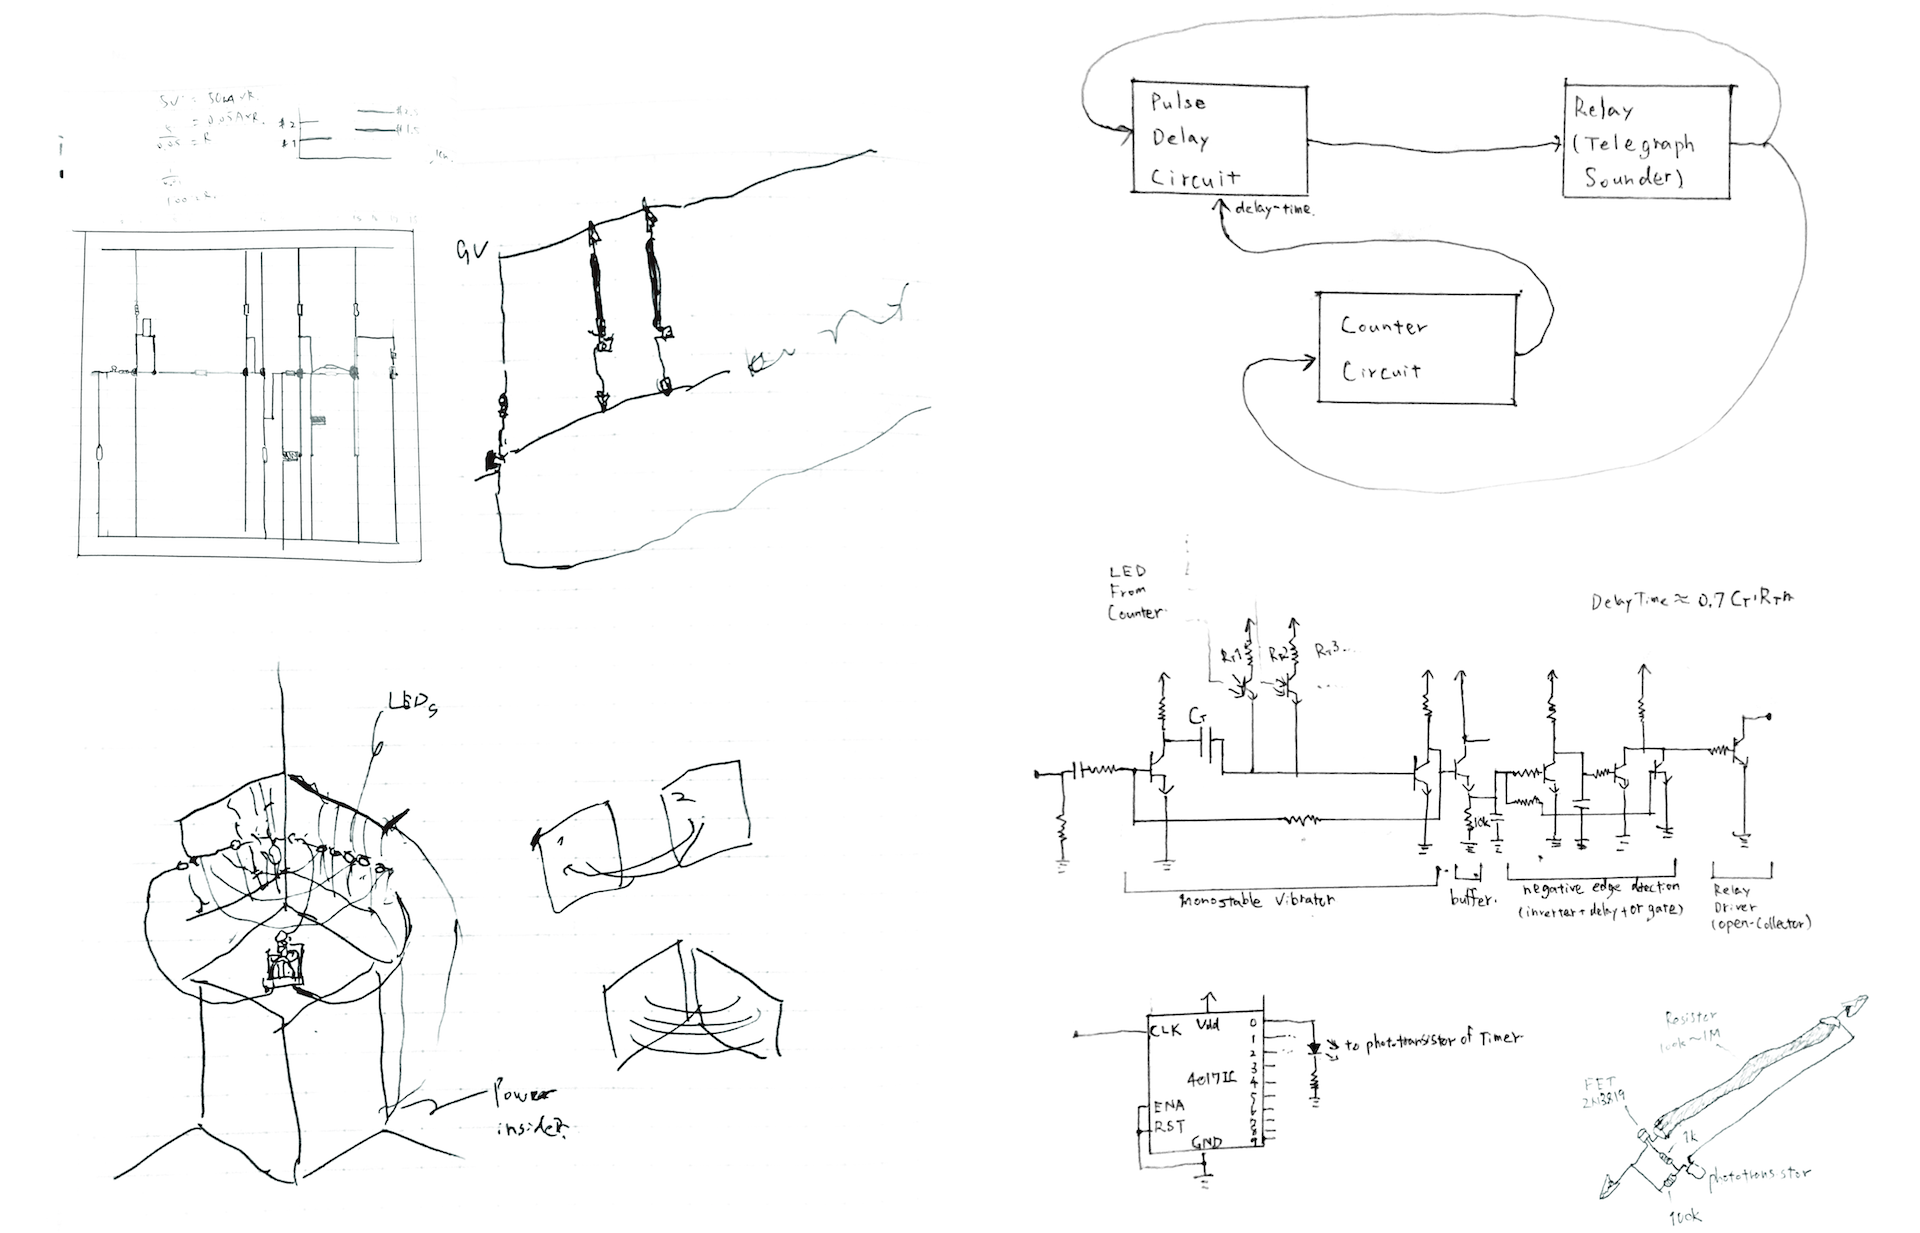 #2
#1
9V
LEDs
1
2
Power
inside.
Pulse
Delay
Circuit
Relay
(Telegraph
Sounder)
delay-time.
Counter
Circuit
LED
From
Counter.
Delay Time ≈ 0.7 CT·RTn
RT1
RT2
RT3...
CT
10k
monostable vibrator
buffer.
negative edge detection
(inverter + delay + or gate)
Relay
Driver
(open-collector)
CLK
Vdd
0
1
2
3
4
5
6
7
8
9
4017IC
ENA
RST
GND
to phototransistor of Timer.
Resistor
100k~1M
FET
2N3819
1k
phototransistor
100k